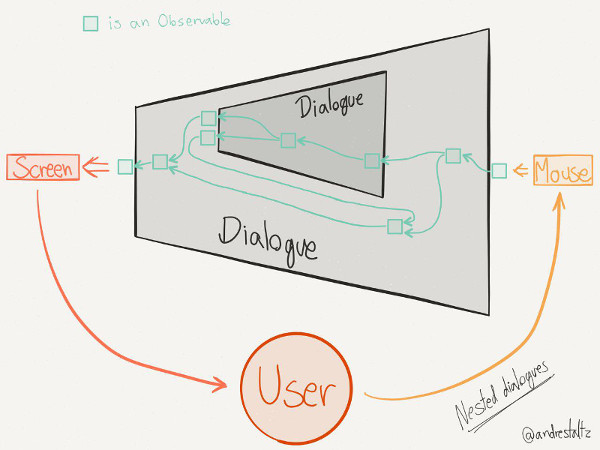 is an Observable
Dialogue
Screen
Mouse
Dialogue
User
Nested dialogues
@andrestaltz